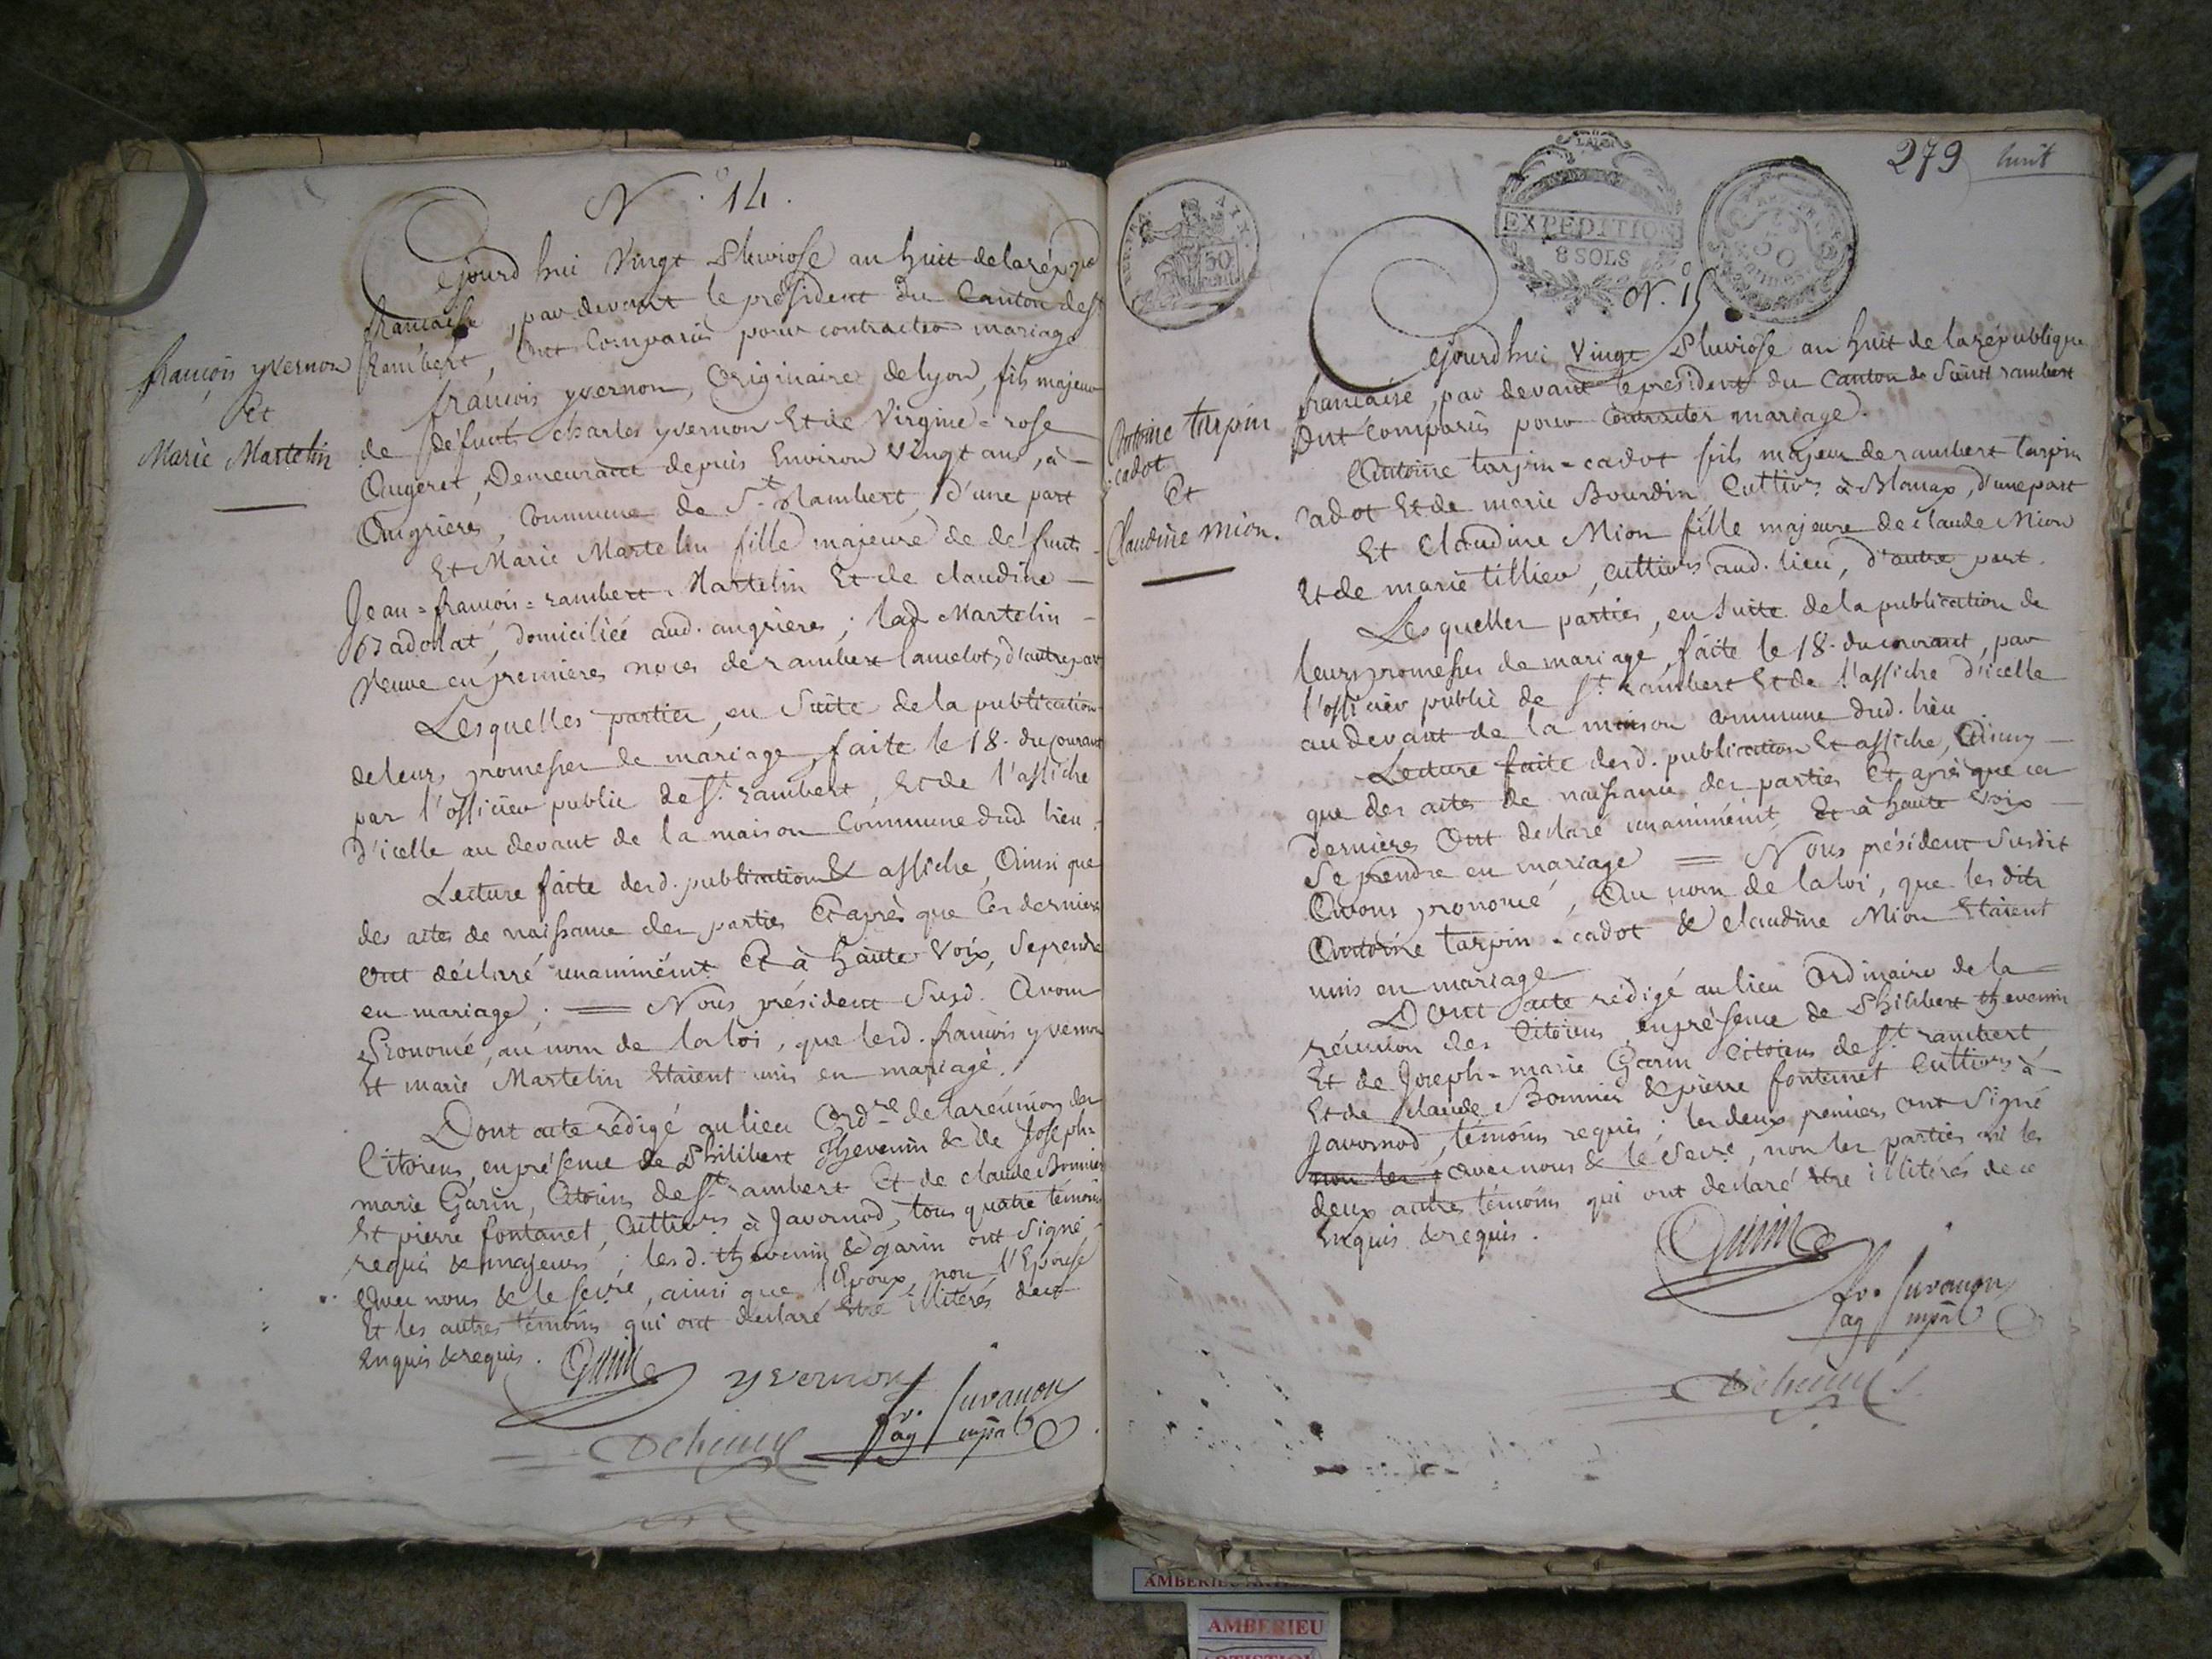 N.o 14.
Cejourd'hui Vingt Pluviose an huit de la répque
française, par devant le président du Canton de St
Rambert, Ont Comparus pour contracter mariage
françois yvernon, Originaire de lyon, fils majeur
de défunt charles yvernon Et de Virginie=rose
Augeret, Demeurant depuis Environ Vingt ans, à
Angrieres, Commune de St Rambert, d'une part
Et Marie Martelin fille majeure de défunts
Jean=françois=rambert Martelin Et de claudine
Badollat, domiciliée aud. angrieres; lad Martelin
Veuve en premieres noces de rambert lamelot, d'autre part
Lesquelles parties, en Suite de la publication
de leurs promesses de mariage, faite le 18. du courant
par l'officier public de St. rambert, Et de l'affiche
D'icelle au devant de la maison Commune dud. lieu.
Lecture faite desd. publication & affiche, Ainsi que
des actes de naissance des parties Et après que Ces dernieres
Ont déclaré unaniment Et à haute Voix, Se prendre
en mariage; = Nous président Susd. Avons
Prononcé, au nom de la loi, que lesd. françois yvernon
Et marie Martelin Etaient unis en mariage.
Dont acte rédigé au lieu Ordre de la réunion des
Citoiens, en présence de Philibert Thevenin & de Joseph=
marie Garin, Citoiens de St. rambert Et de claude Bonnier
Et pierre fontanet, Cultivrs à Javornod, tous quatre témoins
requis & majeurs; lesd. thevenin & garin ont Signé
Avec nous & le Secre, ainsi que l'Epoux, non l'Epouse
Et les autres témoins qui ont déclaré Etre illitérés de ce
Enquis & requis.
Garin
yvernon
fr. Juvanon
ag mpal
françois yvernon
Et
Marie Martelin
279 huit
EXPEDITION
8 SOLS
N.o 15
Cejourd'hui Vingt Pluviose an huit de la république
française, par devant le président du Canton de Saint rambert
Ont Comparus pour Contracter mariage.
Antoine tarpin=cadot fils majeur de rambert tarpin
Cadot Et de marie Bourdin, Cultivrs à Blanax, d'une part
Et Claudine Mion fille majeure de claude Mion
Et de marie tillier, cultivrs aud. lieu, d'autre part.
Lesquelles parties, en Suite de la publication de
leurs promesses de mariage, faite le 18. du courant, par
l'officier public de St. rambert Et de l'affiche d'icelle
au devant de la maison commune dud. lieu
Lecture faite desd. publication Et affiche, Ainsy
que des actes de naissance des parties Et après que ces
dernieres Ont declaré unaniment Et à haute Voix
Se prendre en mariage = Nous président Susdit
Avons prononcé, Au nom de la loi, que les dits
Antoine tarpin=cadot & claudine Mion Etaient
unis en mariage
Dont acte rédigé au lieu Ordinaire de la
réunion des Citoiens en présence de Philibert thevenin
Et de Joseph=marie Garin Citoiens de St. rambert,
Et de Claude Bonnier & pierre fontanet Cultivrs à
Javornod, témoins requis; les deux premiers Ont Signé
non les avec nous & le Secre, non les parties ni les
deux autres témoins qui ont declaré Etre illitérés de ce
Enquis & requis.
Garin
fr. Juvanon
ag mpal
Antoine tarpin
cadot
Et
Claudine mion.
AMBERIEU
AMBERIEU